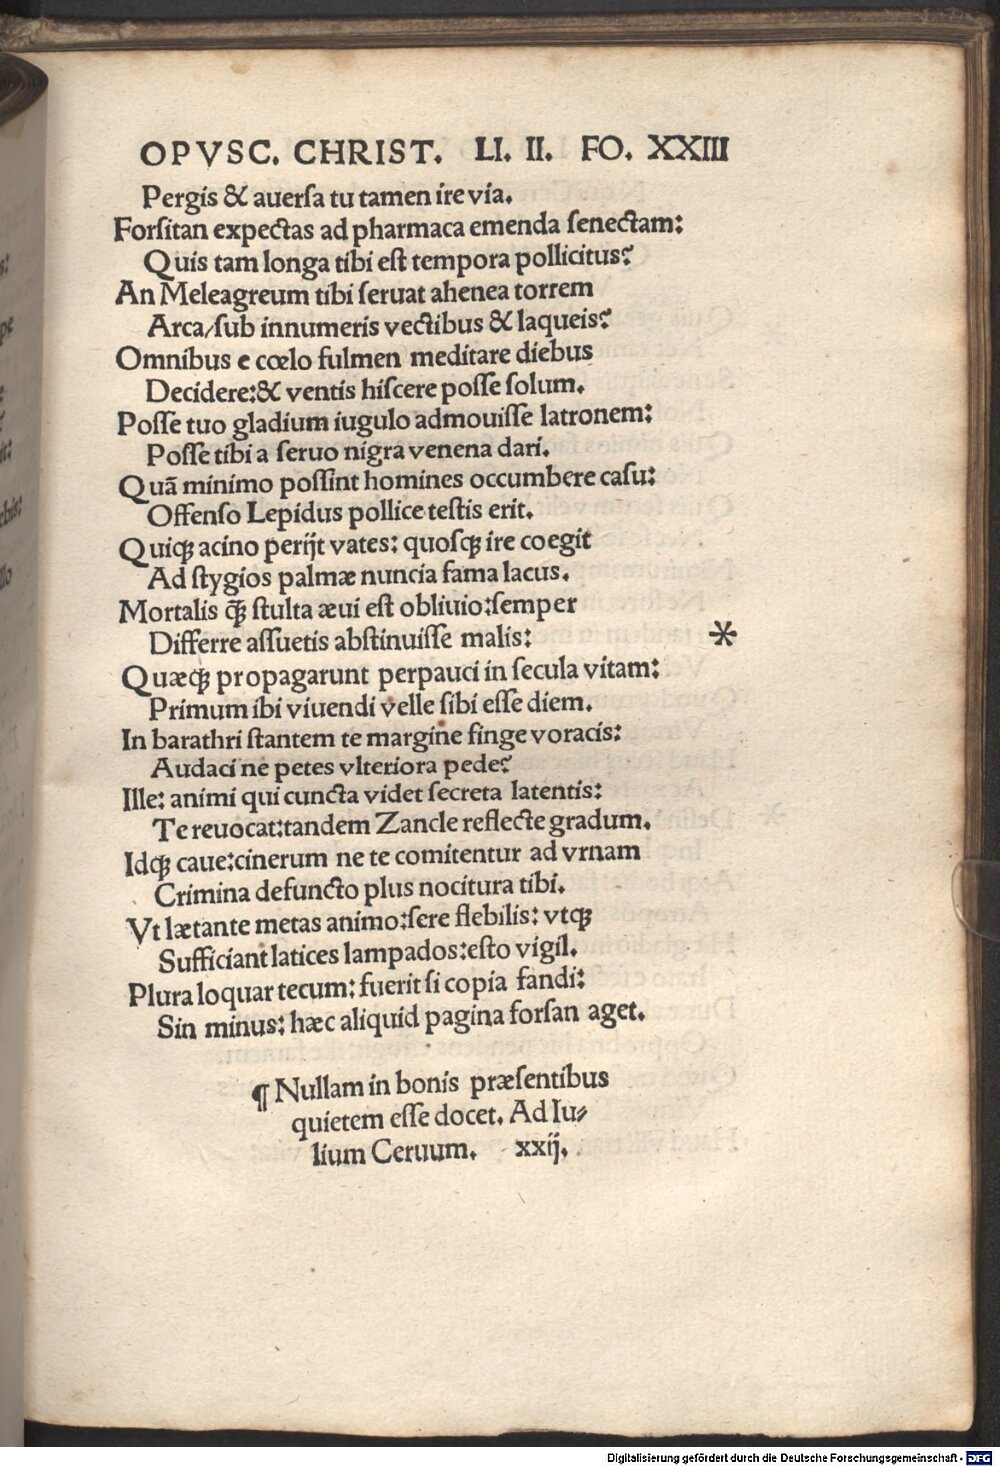 OPVSC. CHRIST. LI. II. FO. XXIII
Pergis & auersa tu tamen ire via.
Forsitan expectas ad pharmaca emenda senectam:
Quis tam longa tibi est tempora pollicitus?
An Meleagreum tibi seruat ahenea torrem
Arca/sub innumeris vectibus & laqueis?
Omnibus e cœlo fulmen meditare diebus
Decidere:& ventis hiscere posse solum.
Posse tuo gladium iugulo admouisse latronem:
Posse tibi a seruo nigra venena dari.
Quā minimo possint homines occumbere casu:
Offenso Lepidus pollice testis erit.
Quiqꝫ acino perijt vates: quosqꝫ ire coegit
Ad stygios palmæ nuncia fama lacus.
Mortalis qꝫ̃ stulta æui est obliuio:semper
Differre assuetis abstinuisse malis: *
Quæqꝫ propagarunt perpauci in secula vitam:
Primum ibi viuendi velle sibi esse diem.
In barathri stantem te margine finge voracis:
Audaci ne petes vlteriora pede?
Ille: animi qui cuncta videt secreta latentis:
Te reuocat:tandem Zancle reflecte gradum.
Idqꝫ caue:cinerum ne te comitentur ad vrnam
Crimina defuncto plus nocitura tibi.
Vt lætante metas animo:sere flebilis: vtqꝫ
Sufficiant latices lampados:esto vigil.
Plura loquar tecum: fuerit si copia fandi:
Sin minus: hæc aliquid pagina forsan aget.
¶ Nullam in bonis præsentibus
quietem esse docet. Ad Iu⸗
lium Ceruum. xxij.
Digitalisierung gefördert durch die Deutsche Forschungsgemeinschaft - DFG